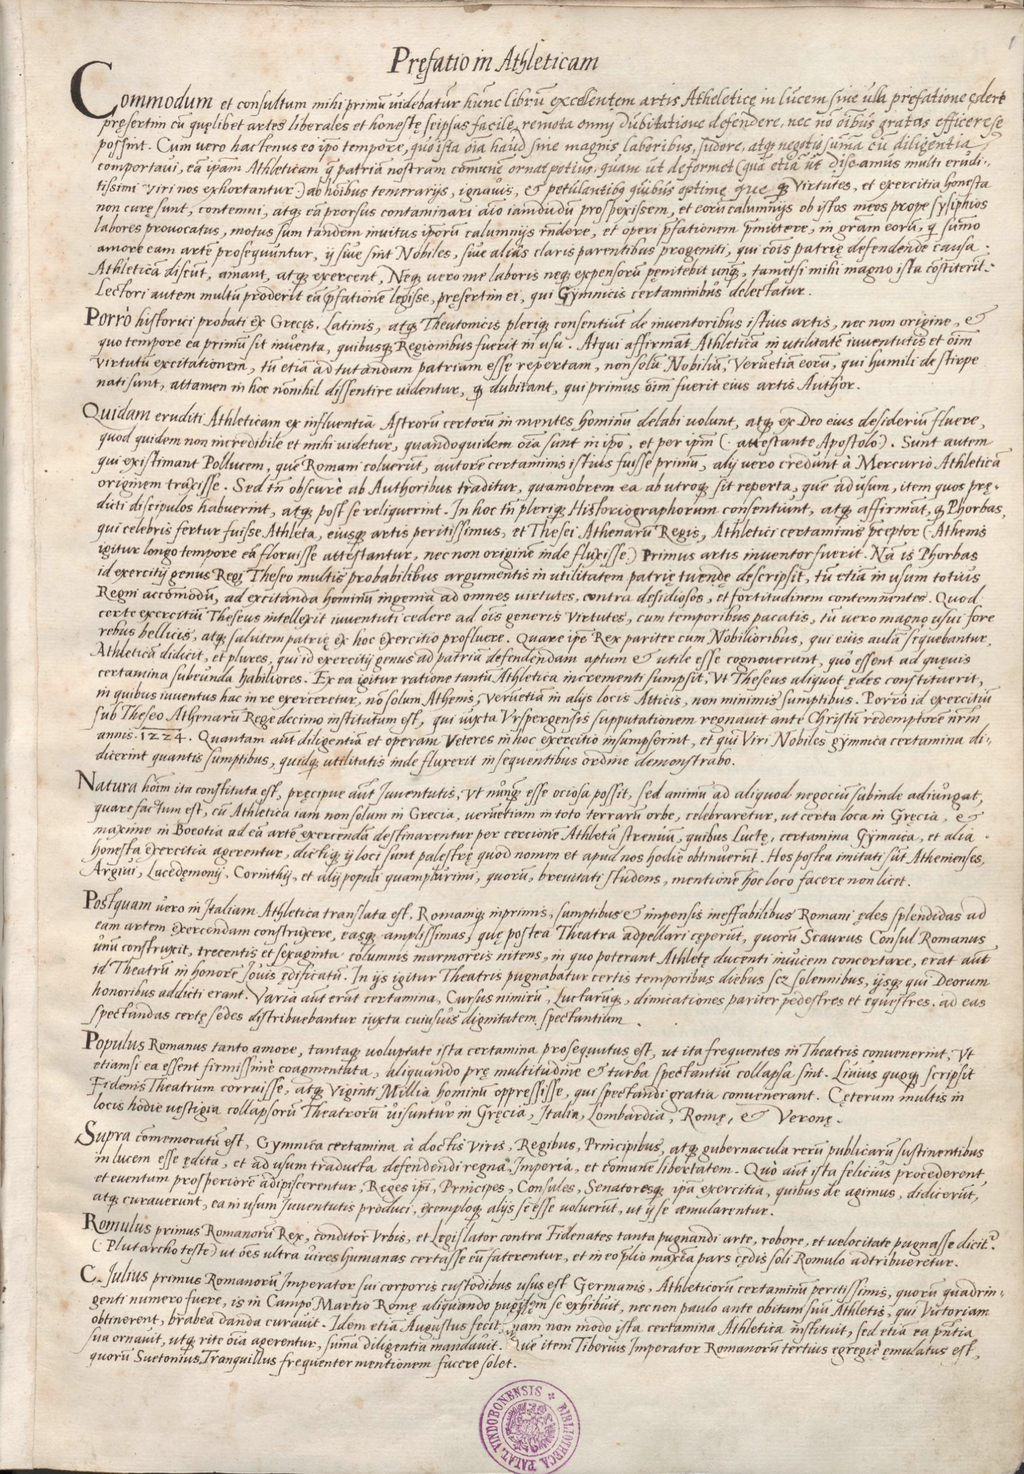 Pręfatio in Athleticam
1
Commodum et consultum mihi primū uidebatur hunc librū excellentem artis Atheleticę in lucem sine ulla prefatione ędere
pręsertim cū quęlibet artes liberales et honestę seipsas facile, remota omni dubitatione defendere, nec nō oībus gratas efficere se
possint. Cum vero hactenus eo ipō tempore, quo ista oīa haud sine magnis laboribus, sudore, atq; negotio, sūma cū diligentia
comportaui, eā ipsam Athleticam q̄ patriā nostram comunē ornaret potius, quam ut deformet (quā etiā ut discamus multi erudi-
tissimi viri nos exhortantur.) ab hoībus temerarijs, ignauis, & petulantibq quibus optimę quęq; Virtutes, et exercitia honesta
non curę sunt, contemni, atq; eā prorsus contaminari aīo iamdudū prospexissem, et eorū calumnijs ob istos meos prope sysiphios
labores prouocatus, motus sum tandem inuitus ipōrū calumnijs rn̄dere, et operi p̄fationem p̄mittere, in gram eorū, q̄ sūmo
amore eam artē prosequuntur, ij siue sint Nobiles, siue alias claris parentibus progeniti, qui cōis patrię defendende causa
Athleticā discūt, amant, atq; exercent, Neq; vero me laboris neq; expensorū penitebit unq̄, tametsi mihi magno ista cōstiterit.
Lectori autem multū proderit eā p̄fatione legisse, pręsertim ei, qui Gymnicis certaminibus delectatur.
Porrò historici probati ex Gręcis, Latinis, atq; Theutonicis pleriq; consentiūt de inuentoribus istius artis, nec non origine, &
quo tempore ea primū sit inuenta, quibusq; Regionibus fuerit in usu. Atqui affirmāt Athleticā in utilitatē iuuentutis et oīm
virtutū excitationem, tū etiā ad tutandum patriam esse repertam, non solū Nobiliū, Verūetiā eorū, qui humili de stirpe
nati sunt, attamen in hoc nonnihil dissentire uidentur, q̄ dubitant, qui primus oīm fuerit eius artis Author.
Quidam eruditi Athleticam ex influentia Astrorū certorū in mentes hominū delabi volunt, atq; ex Deo eius desideriū fluere,
quod quidem non incredibile et mihi videtur, quandoquidem oīa sunt in ipō, et per ipm̄ (attestante Apostolo). Sunt autem
qui existimant Pollucem, quē Romani coluerūt, autorē certaminis istius fuisse primū, alij vero credunt à Mercurio Athleticā
originem traxisse. Sed tn̄ obscurè ab Authoribus traditur, quamobrem ea ab utroq; sit reperta, quē ad usum, item quos pre-
dicti discipulos habuerint, atq; post se reliquerint. In hoc tn̄ pleriq; Historiographorum consentiunt, atq; affirmāt, q̄ Phorbas,
qui celebris fertur fuisse Athleta, eiusq; artis peritissimus, et Thesei Athenarū Regis, Athletici certaminis pceptor (Athenis
igitur longo tempore eā floruisse attestantur, nec non originē inde fluxisse.) Primus artis inuentor fuerit. Nā is Phorbas
id exercitij genus Regi Theseo multis probabilibus argumentis in utilitatem patrię tuendę descripsit, tū etiā in usum totius
Regni accōmodū, ad excitanda hominū ingenia ad omnes virtutes, contra desidiosos, et fortitudinem contemnentes. Quod
certe exercitiū Theseus intellexit iuuentuti cedere ad oīs generis Virtutes, cum temporibus pacatis, tū vero magno usui fore
rebus bellicis, atq; salutem patrię ex hoc exercitio profluere. Quare ipē Rex pariter cum Nobilioribus, qui eius aulā sequebantur,
Athleticā didicit, et plures, qui id exercitij genus ad patriā defendendam aptum & utile esse cognouerunt, quò essent ad quęuis
certamina subeunda habiliores. Ex ea igitur ratione tanta Athletica incrementi sumpsit, Vt Theseus aliquot ędes constituerit,
in quibus iuuentus hac in re exerceretur, nō solum Athenis, Verūetiā in alijs locis Atticis, non minimis sumptibus. Porrò id exercitiū
sub Theseo Athenarū Rege decimo institutum est, qui iuxta Vrspergensis supputationem regnauit ante Christū redemptorē nr̄m
annis. 1224. Quantam aūt diligentiā et operam Veteres in hoc exercitio insumpserint, et qui Viri Nobiles gymnica certamina di-
dicerint quantis sumptibus, quidq; utilitatis inde fluxerit in sequentibus ordine demonstrabo.
Natura hoīm ita constituta est, pręcipue aūt Juuentutis, Vt nunq̄ esse ociosa possit, sed animū ad aliquod negociū subinde adiungat,
quare factum est, cū Athletica iam non solum in Grecia, verūetiam in toto terrarū orbe, celebraretur, ut certa loca in Gręcia, &
maxime in Boeotia ad eā artē exercendā destinarentur per cercionē Athletā strenuū, quibus Luctę, certamina Gymnica, et alia
honesta exercitia agerentur, dictiq; ij loci sunt palestrę quod nomen et apud nos hodie obtinuerūt. Hos postea imitati sūt Athenienses,
Argiui, Lacędęmonij, Corinthij, et alij populi quamplurimi, quorū, breuitati studens, mentionē hoc loco facere non licet.
Postquam vero in Italiam Athletica translata est, Romamq; inprimis, sumptibus & impensis ineffabilibus Romani ędes splendidas ad
eam artem exercendam construxere, easq; amplissimas, quę postea Theatra adpellari cęperūt, quorū Scaurus Consul Romanus
unū construxit, trecentis et sexaginta columnis marmoreis nitens, in quo poterant Athletę ducenti inuicem concertare, erat aūt
id Theatrū in honorē Iouis ędificatū. In ijs igitur Theatris pugnabatur certis temporibus diebus scz solemnibus, ijsq; qui Deorum
honoribus addicti erant. Varia aūt erāt certamina, Cursus nimirū, Luctarūq;, dimicationes pariter pedestres et equestres. ad eas
spectandas certę sedes distribuebantur iuxta cuiusuis dignitatem spectantium.
Populus Romanus tanto amore, tantaq; voluptate ista certamina prosequutus est, ut ita frequentes in Theatris conuenerint, Vt
etiamsi ea essent firmissimè coagmentata, aliquando prę multitudine & turba spectantiū collapsa sint. Liuius quoq; scripsit
Fidenis Theatrum corruisse, atq; Viginti Millia hominū oppressisse, qui spectandi gratia conuenerant. Cęterum multis in
locis hodie vestigia collapsorū Theatrorū uisuntur in Gręcia, Italia, Lombardia, Romę, & Veronę.
Supra cōmemoratū est, Gymnica certamina à doctis Viris, Regibus, Principibus, atq; gubernacula rerū publicarū sustinentibus
in lucem esse ędita, et ad usum traducta defendendi regna, Imperia, et comunē libertatem. Quò aūt ista felicius procederent
et euentum prosperiorē adipiscerentur, Reges ipī, Principes, Consules, Senatoresq; ipā exercitia, quibus de agimus, didicerūt,
atq; curauerunt, ea in usum Juuentutis produci, exemploq; alijs se esse voluerūt, ut ij se ęmularentur.
Romulus primus Romanorū Rex, conditor Vrbis, et legislator contra Fidenates tanta pugnandi arte, robore, et velocitate pugnasse dicit~
(Plutarcho teste) ut oēs ultra vires humanas certasse eū faterent, et in eo p̄lio maxīa pars cędis soli Romulo adtribueretur.
C. Julius primus Romanorū Imperator sui corporis custodibus usus est Germanis, Athleticorū certaminū peritissimis, quorū quadrin-
genti numero fuere, is in Campo Martio Romę aliquando pugilem se exhibuit, nec non paulo ante obitum suū Athletis, qui Victoriam
obtinerent, brabea danda curauit. Idem etiā Augustus fecit, nam non modo ista certamina Athletica instituit, sed etiā ea pn̄tia
sua ornauit, utq; rite oīa agerentur, sūma diligentia mandauit. Quē item Tiberius Imperator Romanorū tertius egregiè ęmulatus est,
quorū Suetonius Tranquillus frequenter mentionem facere solet.
BIBLIOTHECA PALAT. VINDOBONENSIS